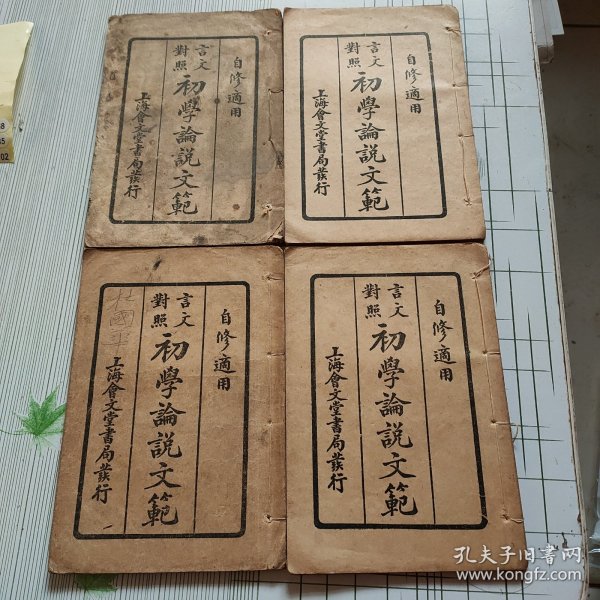 自修適用
言文
對照
初學論說文範
上海會文堂書局發行
自修適用
言文
對照
初學論說文範
上海會文堂書局發行
自修適用
言文
對照
初學論說文範
上海會文堂書局發行
自修適用
言文
對照
初學論說文範
上海會文堂書局發行
孔夫子旧书网
www.kongfz.com